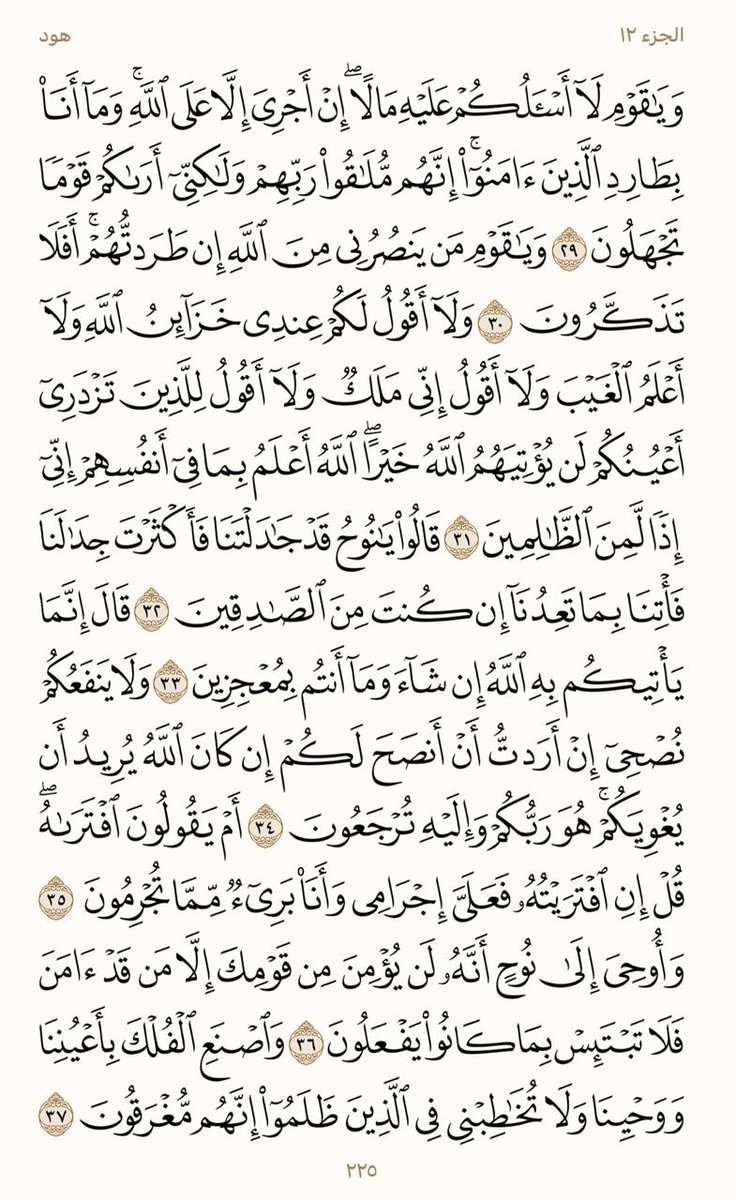 الجزء ١٢
هود
وَيَٰقَوۡمِ لَآ أَسۡـَٔلُكُمۡ عَلَيۡهِ مَالًاۖ إِنۡ أَجۡرِيَ إِلَّا عَلَى ٱللَّهِۚ وَمَآ أَنَا۠
بِطَارِدِ ٱلَّذِينَ ءَامَنُوٓاْۚ إِنَّهُم مُّلَٰقُواْ رَبِّهِمۡ وَلَٰكِنِّيٓ أَرَىٰكُمۡ قَوۡمٗا
تَجۡهَلُونَ ٢٩ وَيَٰقَوۡمِ مَن يَنصُرُنِي مِنَ ٱللَّهِ إِن طَرَدتُّهُمۡۚ أَفَلَا
تَذَكَّرُونَ ٣٠ وَلَآ أَقُولُ لَكُمۡ عِندِي خَزَآئِنُ ٱللَّهِ وَلَآ
أَعۡلَمُ ٱلۡغَيۡبَ وَلَآ أَقُولُ إِنِّي مَلَكٞ وَلَآ أَقُولُ لِلَّذِينَ تَزۡدَرِيٓ
أَعۡيُنُكُمۡ لَن يُؤۡتِيَهُمُ ٱللَّهُ خَيۡرًاۖ ٱللَّهُ أَعۡلَمُ بِمَا فِيٓ أَنفُسِهِمۡ إِنِّيٓ
إِذٗا لَّمِنَ ٱلظَّٰلِمِينَ ٣١ قَالُواْ يَٰنُوحُ قَدۡ جَٰدَلۡتَنَا فَأَكۡثَرۡتَ جِدَٰلَنَا
فَأۡتِنَا بِمَا تَعِدُنَآ إِن كُنتَ مِنَ ٱلصَّٰدِقِينَ ٣٢ قَالَ إِنَّمَا
يَأۡتِيكُم بِهِ ٱللَّهُ إِن شَآءَ وَمَآ أَنتُم بِمُعۡجِزِينَ ٣٣ وَلَا يَنفَعُكُمۡ
نُصۡحِيٓ إِنۡ أَرَدتُّ أَنۡ أَنصَحَ لَكُمۡ إِن كَانَ ٱللَّهُ يُرِيدُ أَن
يُغۡوِيَكُمۡۚ هُوَ رَبُّكُمۡ وَإِلَيۡهِ تُرۡجَعُونَ ٣٤ أَمۡ يَقُولُونَ ٱفۡتَرَىٰهُۖ
قُلۡ إِنِ ٱفۡتَرَيۡتُهُۥ فَعَلَيَّ إِجۡرَامِي وَأَنَا۠ بَرِيٓءٞ مِّمَّا تُجۡرِمُونَ ٣٥
وَأُوحِيَ إِلَىٰ نُوحٍ أَنَّهُۥ لَن يُؤۡمِنَ مِن قَوۡمِكَ إِلَّا مَن قَدۡ ءَامَنَ
فَلَا تَبۡتَئِسۡ بِمَا كَانُواْ يَفۡعَلُونَ ٣٦ وَٱصۡنَعِ ٱلۡفُلۡكَ بِأَعۡيُنِنَا
وَوَحۡيِنَا وَلَا تُخَٰطِبۡنِي فِي ٱلَّذِينَ ظَلَمُوٓاْ إِنَّهُم مُّغۡرَقُونَ ٣٧
٢٢٥